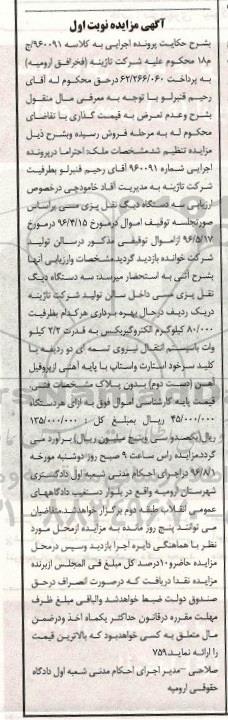 آگهی مزایده نوبت اول
بشرح حکایت پرونده اجرایی به کلاسه ۹۶۰۰۹۱/ج
م۱۸ محکوم علیه شرکت تاژینه (فخرافق ارومیه)
به پرداخت ۶۲/۲۶۶/۰۶۰ درحق محکوم له آقای
رحیم قنبرلو با توجه به معرفی مال منقول
بشرح وعدم تعرض به قیمت گذاری با تقاضای
محکوم له به مرحله فروش رسیده وبشرح ذیل
مزایده تنظیم شد.مشخصات ملک: احتراما درپرونده
اجرایی شماره ۹۶۰۰۹۱ آقای رحیم قنبرلو بطرفیت
شرکت تاژینه به مدیریت آقاد خامودچی درخصوص
ارزیابی سه دستگاه دیگ نقل پزی مسی براساس
صورتجلسه توقیف اموال درمورخ ۹۶/۴/۱۵ درمورخ
۹۶/۵/۱۷ ازاموال توقیفی مذکور درسالن تولید
شرکت خوانده بازدید گردید.مشخصات وارزیابی آنها
بشرح آتی به استحضار میرسد: سه دستگاه دیگ
نقل پزی مسی داخل سالن تولید شرکت تاژینه
دریک ردیف درحال بهره برداری هرکدام بظرفیت
۸۰/۰۰۰ کیلوگرم الکتروگیربکس به قدرت ۲/۲ کیلو
وات باسیستم انتقال نیروی تسمه ای دو ردیفه با
کلید سرخود استارت واستاپ با پایه آهنی ازپروفیل
آهن (دست دوم) بدون پلاک مشخصات فنی.
قیمت پایه کارشناسی اموال فوق به ازای هردستگاه
۴۵/۰۰۰/۰۰۰ ریال بمبلغ کل : ۱۳۵/۰۰۰/۰۰۰
ریال(یکصدو سی وپنج میلیون ریال) براورد می
گردد.مزایده راس ساعت ۹ صبح روز دوشنبه مورخه
۹۶/۸/۱ دراجرای احکام مدنی شعبه اول دادگستری
شهرستان ارومیه واقع در بلوار دستغیب دادگاههای
عمومی انقلاب طبقه دوم برگزار خواهدشد.متقاضیان
می توانند پنج روز مانده به مزایده ازمحل مورد
نظر با هماهنگی دایره اجرا بازدید وسپس درمحل
مزایده حاضرو۱۰درصد کل مبلغ فی المجلس ازبرنده
مزایده نقدا دریافت که درصورت انصراف درحق
صندوق دولت ضبط خواهدشد والباقی مبلغ ظرف
مهلت مقرره درقانون حداکثر یکماه اخذ ودرضمن
مال متعلق به کسی خواهدبود که بالاترین قیمت
را ارائه نماید.۷۵۹
صلاحی –مدیر اجرای احکام مدنی شعبه اول دادگاه
حقوقی ارومیه